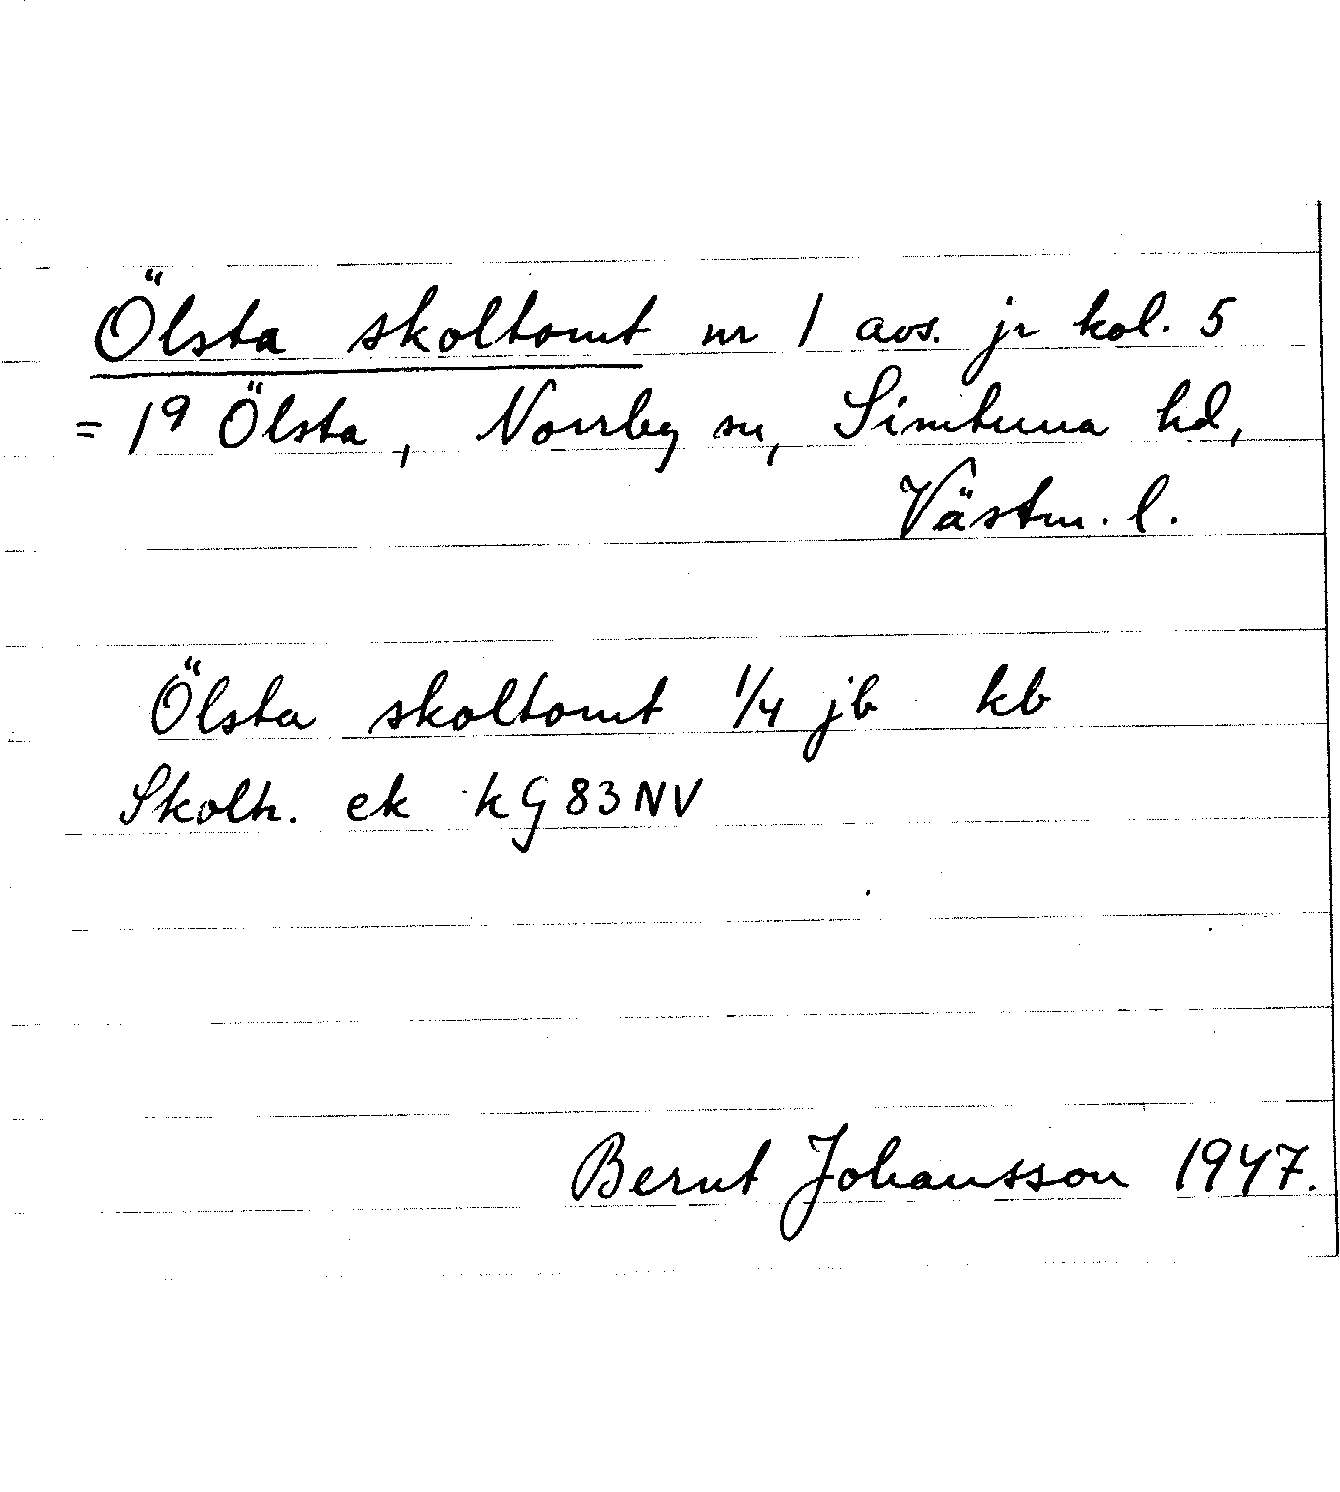 Ölsta skoltomt nr 1 avs. jr kol. 5
= 1⁹ Ölsta, Norrby sn, Simtuna hd,
Västm. l.
Ölsta skoltomt 1/4 jb kb
Skolh. ek k G83NV
Bernt Johansson 1947.